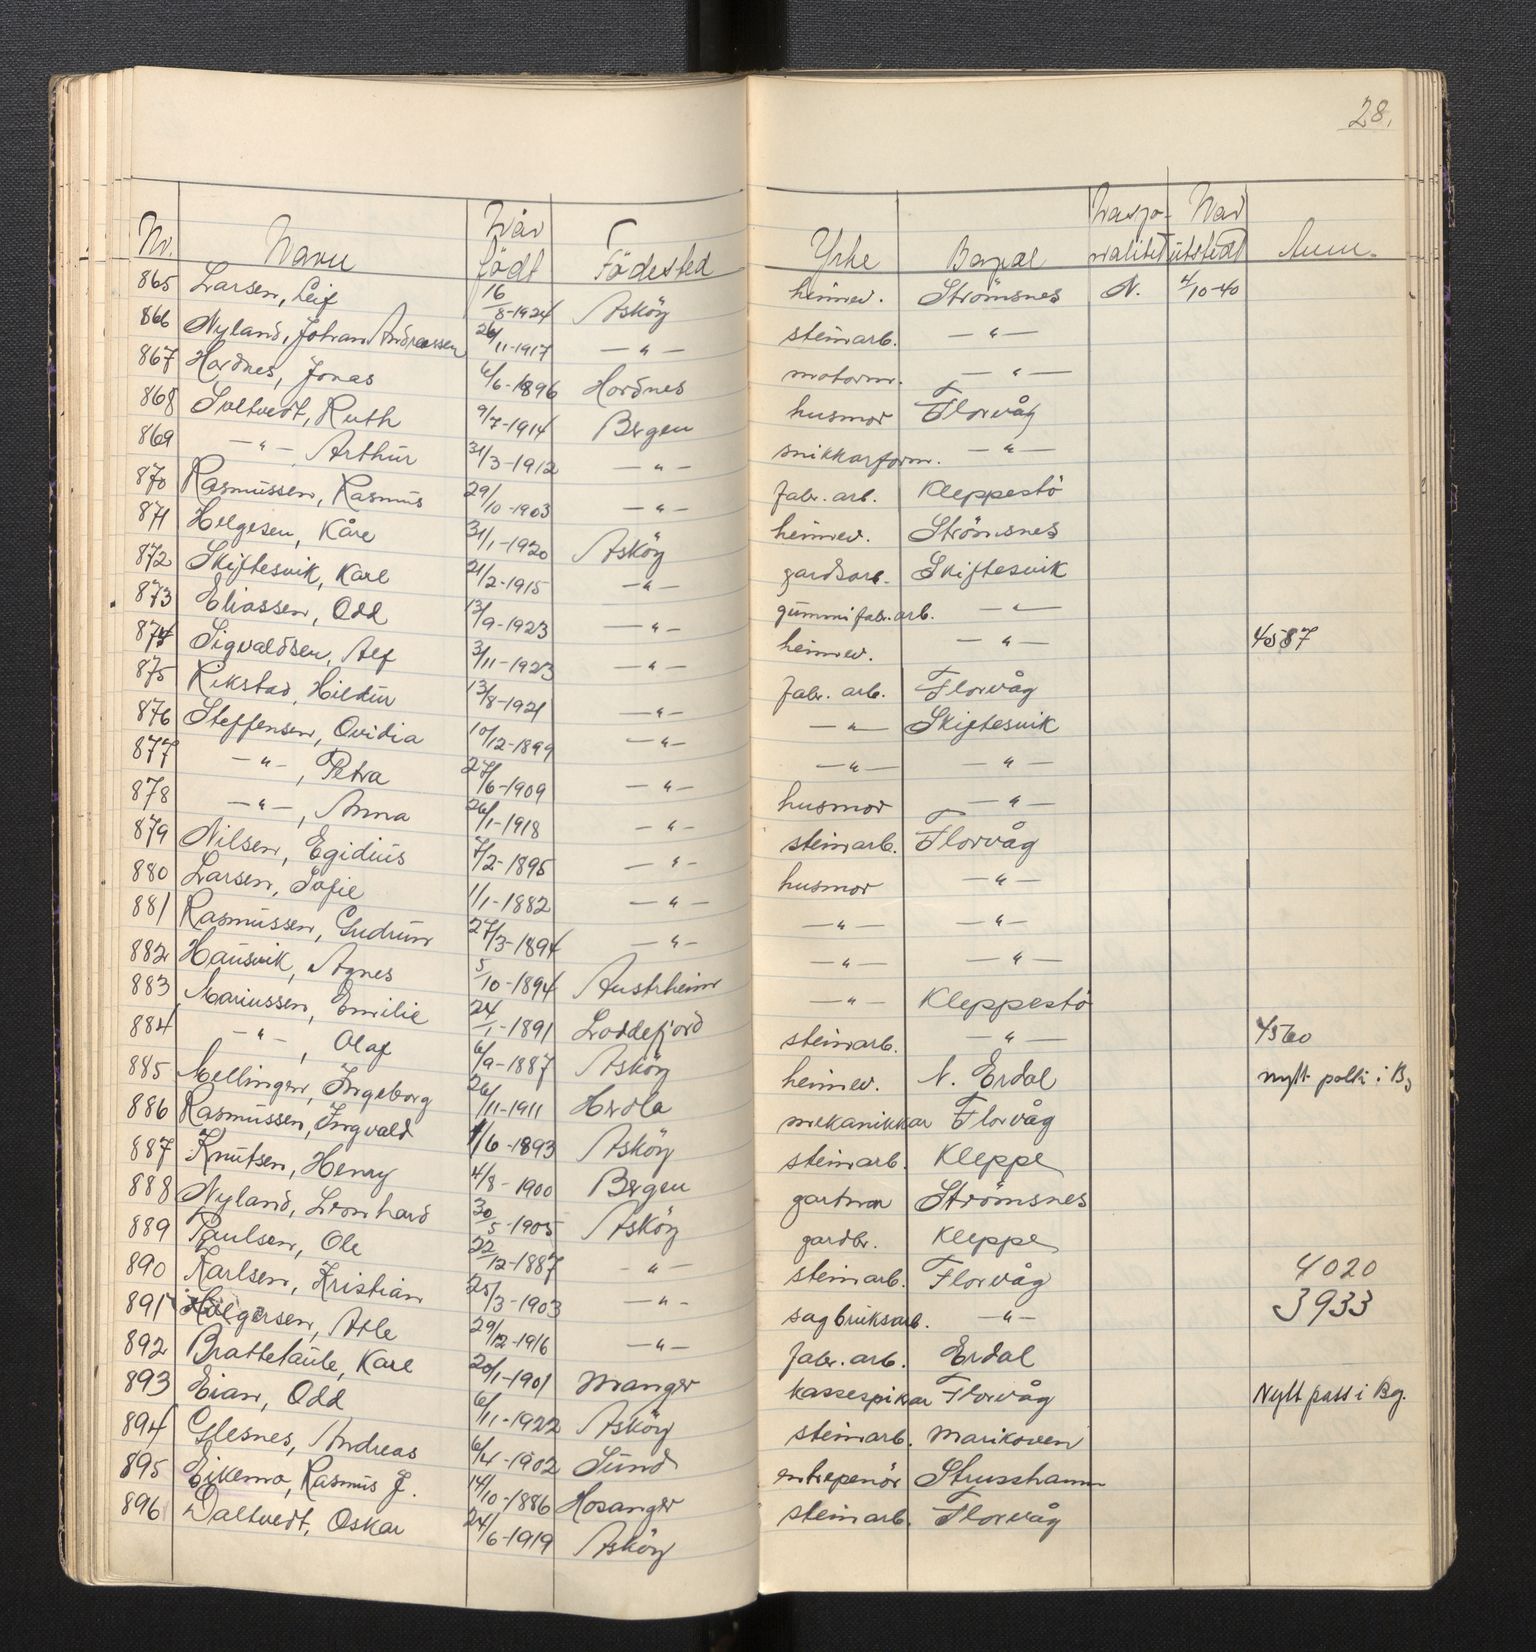 28.
Nr. Navn Når födt Födested Yrke Bopæl Nasjonalitet Når utstedt Anm.
865 Larsen, Leif 16/8-1924 Asköy heimev. Strömsnes N. 4/10-40
866 Nyland, Johan Andreassen 26/11-1917 —"— steinarb. —"—
867 Hordnes, Jonas 6/6-1896 Hordnes motorm. —"—
868 Soltvedt, Ruth 9/7-1914 Bergen husmor Florvåg
869 —"—, Arthur 31/3-1912 —"— snikkarform. —"—
870 Rasmussen, Rasmus 29/10-1903 —"— fabr. arb. Kleppestö
871 Helgesen, Kåre 31/1-1920 Asköy heimev. Strömsnes
872 Skiftesvik, Karl 21/2-1915 —"— gardsarb. Skiftesvik
873 Eliassen, Odd 13/9-1923 —"— gummifabr.arb. —"—
874 Sigvaldsen, Alf 3/11-1923 —"— heimev. —"— 4587
875 Rikstad, Hildur 13/8-1921 —"— fabr. arb. Florvåg
876 Steffensen, Ovidia 10/12-1899 —"— —"— Skiftesvik
877 —"—, Petra 27/6-1909 —"— —"— —"—
878 —"—, Anna 26/1-1918 —"— husmor —"—
879 Nilsen, Egidius 7/2-1895 —"— steinarb. Florvåg
880 Larsen, Sofie 1/1-1882 —"— husmor —"—
881 Rasmussen, Gudrun 27/3-1894 —"— —"— —"—
882 Hausvik, Agnes 5/10-1894 Austrheim —"— —"—
883 Mariussen, Emilie 24/1-1891 Loddefjord —"— Kleppestö
884 —"—, Olaf 6/9-1887 Asköy steinarb. —"— 4560
885 Mellingen, Ingeborg 26/11-1911 Herdla heimev. N. Erdal nytt paß i Bg
886 Rasmussen, Ingvald 1/6-1893 Asköy mekanikkar Florvåg
887 Knutsen, Henry 4/8-1900 Bergen steinarb. Kleppe
888 Nyland, Leonhard 30/5-1905 Asköy gartnar Strömsnes
889 Paulsen, Ole 22/12-1887 —"— gardbr. Kleppe
890 Karlsen, Kristian 25/3-1903 —"— steinarb. Florvåg 4020
891 Holgersen, Atle 29/12-1916 —"— sagbruksarb. —"— 3933
892 Brattetaule, Karl 20/1-1901 Manger fabr. arb. Erdal
893 Eian, Odd 6/11-1922 Asköy kassespikar Florvåg Nytt pass i Bg.
894 Glesnes, Andreas 6/4-1902 Sund steinarb. Marikoven
895 Eikemo, Rasmus J. 14/10-1886 Hosanger entrepenör Strusshamn
896 Daltvedt, Oskar 24/6-1919 Asköy steinarb. Florvåg